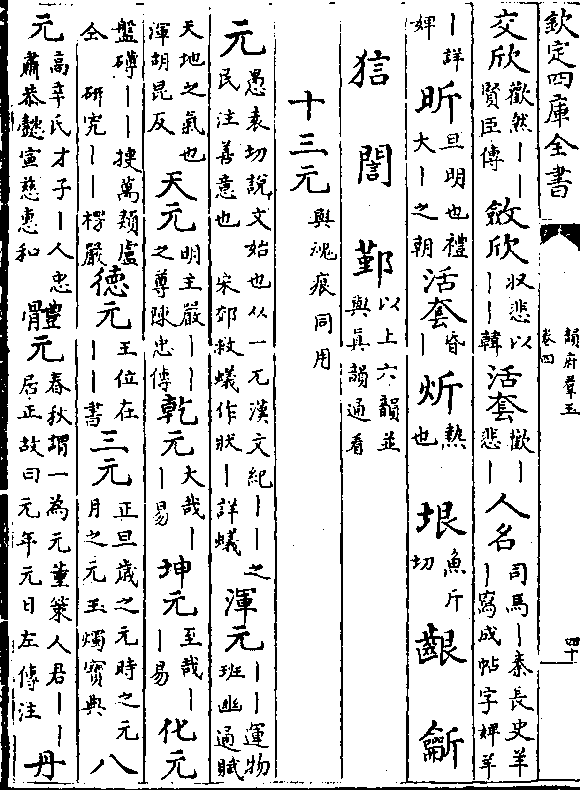 欽定四庫全書
韻府羣玉
卷四
四十
交欣 歡然丨丨賢臣傳 斂欣 収悲以丨丨韓 活套 歡丨悲丨 人名 司馬丨秦長史羊丨窩成帖字婢羊
丨詳婢 昕 旦明也禮大丨之朝 活套 昏丨 炘 熱也 垠 魚斤切 齦 齗
狺 誾 鄞 以上六韻並與真韻通看
十三元 與魂痕同用
元 愚袁切說文始也从一兀漢文紀丨丨之民注善意也 宋郊救蟻作狀丨詳蟻 渾元 丨丨運物班幽通賦
天地之氣也渾胡昆反 天元 明主嚴丨丨之尊陳忠傳 乾元 大哉丨丨易 坤元 至哉丨丨易 化元
盤礡丨丨挭萬類盧仝 研究丨丨楞嚴 德元 王位在丨丨書 三元 正旦歲之元時之元月之元玉燭寶典 八
元 高辛氏才子丨人忠肅恭懿宣慈惠和 體元 春秋謂一為元董策人君丨丨居正故曰元年元日左傳注 丹